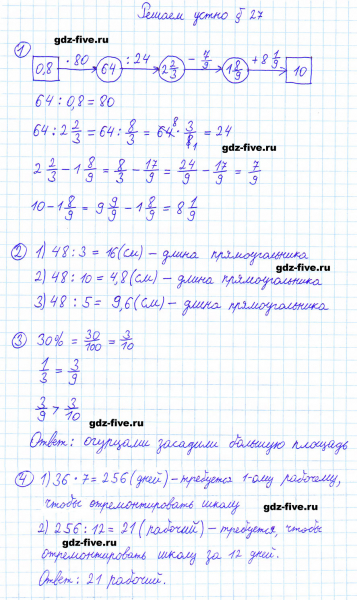 Решаем устно § 27
gdz-five.ru
1 0,8 · 80 64 : 24 2 2/3 - 7/9 1 8/9 + 8 1/9 10
64 : 0,8 = 80
64 : 2 2/3 = 64 : 8/3 = 64 · 3/8 = 24
gdz-five.ru
2 2/3 - 1 8/9 = 8/3 - 17/9 = 24/9 - 17/9 = 7/9
10 - 1 8/9 = 9 9/9 - 1 8/9 = 8 1/9
2 1) 48 : 3 = 16 (см) - длина прямоугольника
gdz-five.ru
2) 48 : 10 = 4,8 (см) - длина прямоугольника
3) 48 : 5 = 9,6 (см) - длина прямоугольника
3 30% = 30/100 = 3/10
1/3 = 3/9
3/9 > 3/10
gdz-five.ru
Ответ: огурцами засадили большую площадь
4 1) 36 · 7 = 256 (дней) - требуется 1-ому рабочему,
чтобы отремонтировать школу
gdz-five.ru
2) 256 : 12 = 21 (рабочий) - требуется, чтобы
gdz-five.ru
отремонтировать школу за 12 дней.
Ответ: 21 рабочий.